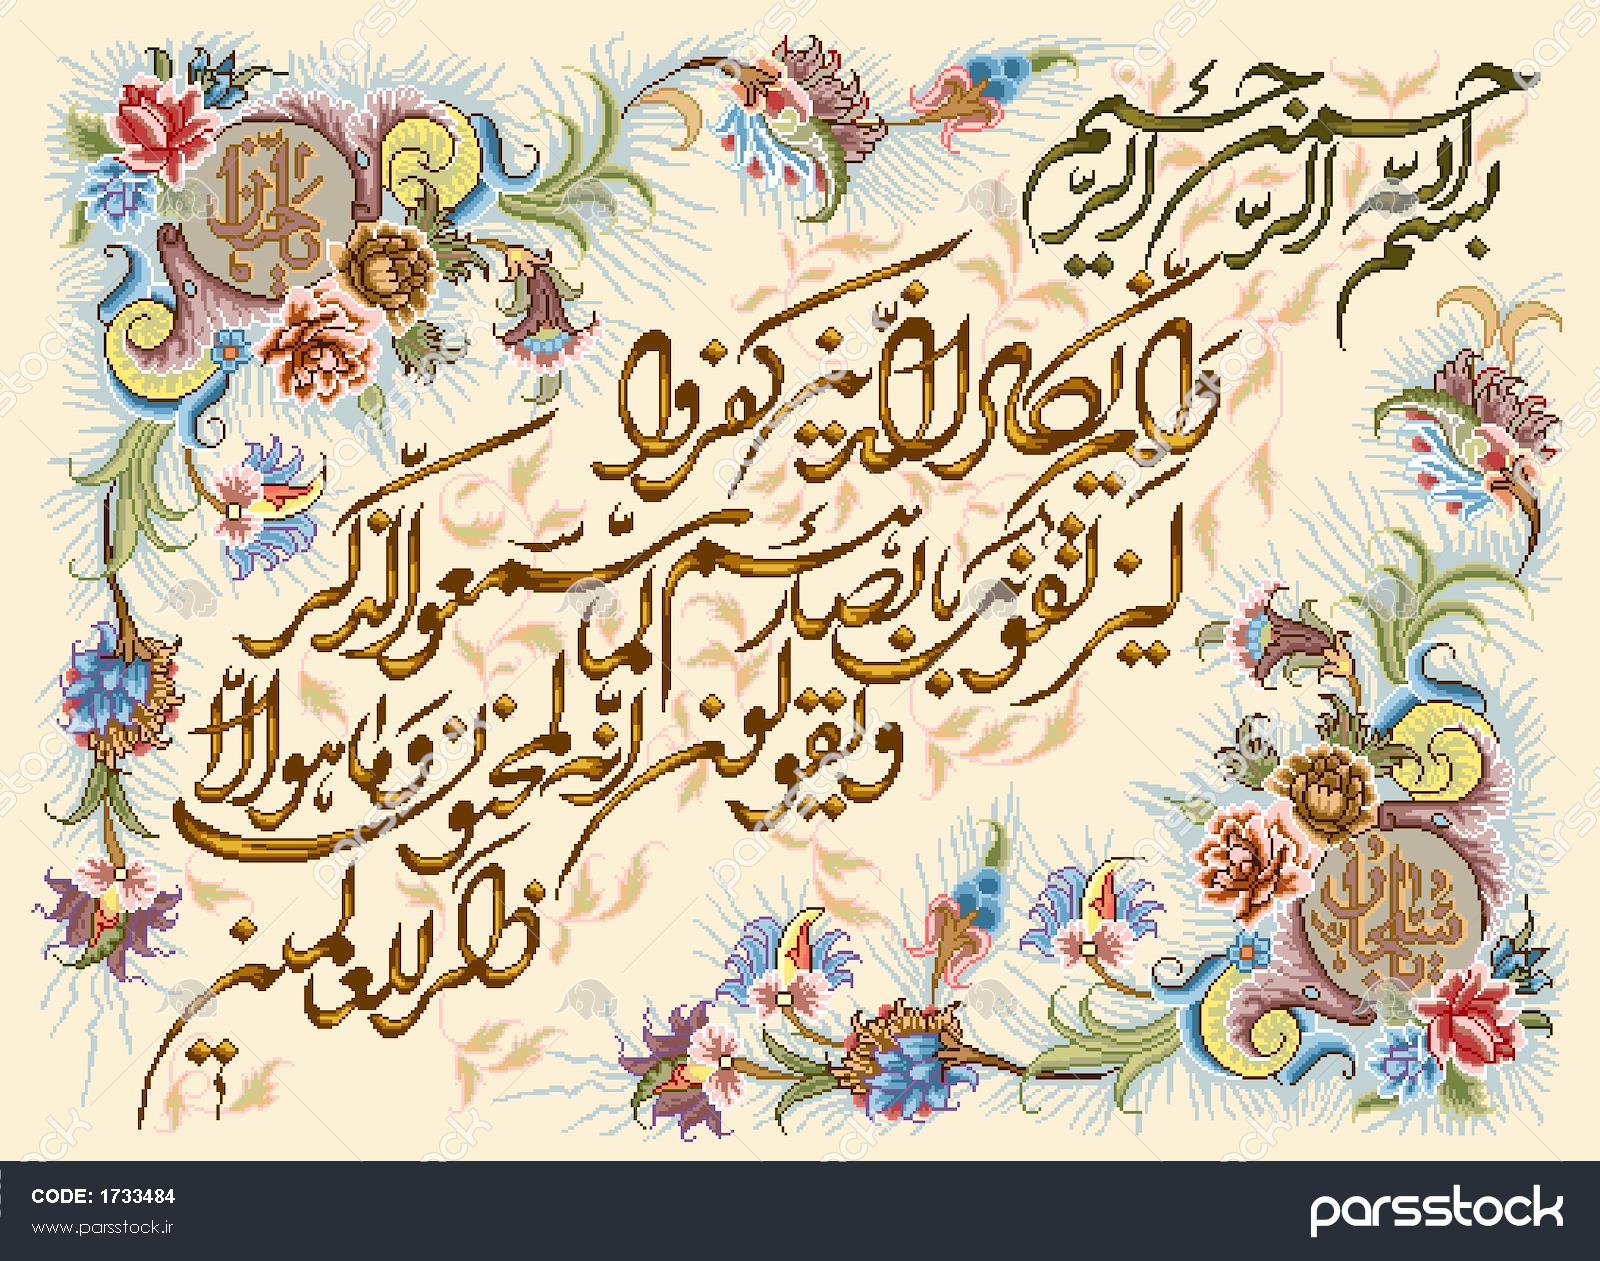 بسم الله الرحمن الرحیم
وان یکاد الذین کفروا
لیزلقونک بابصارهم لما سمعوا الذکر
ویقولون انه لمجنون وما هو الا
ذکر للعالمین
CODE: 1733484
www.parsstock.ir
parsstock